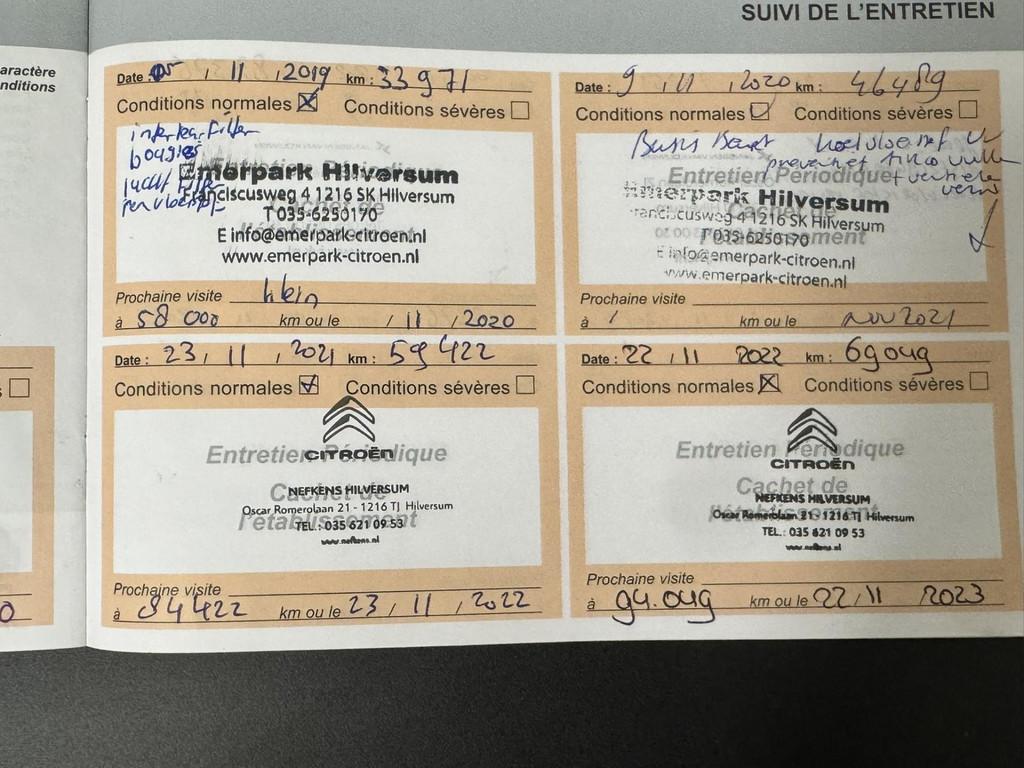 SUIVI DE L'ENTRETIEN
aractère
nditions
Date : , 11 , 2019 km : 33 971
Conditions normales ☒ Conditions sévères ☐
bougies
Entretien Périodique
Cachet de
l'établissement
Emerpark Hilversum
Franciscusweg 4 1216 SK Hilversum
T 035-6250170
E info@emerpark-citroen.nl
www.emerpark-citroen.nl
Prochaine visite klein
à 58 000 km ou le / 11 / 2020
Date : 9 , 11 , 2020 km : 46489
Conditions normales ☑ Conditions sévères ☐
Entretien Périodique
Cachet de
l'établissement
Emerpark Hilversum
Franciscusweg 4 1216 SK Hilversum
T 035-6250170
E info@emerpark-citroen.nl
www.emerpark-citroen.nl
Prochaine visite
à / km ou le nov 2021
Date : 23 , 11 , 2021 km : 59 422
Conditions normales ☑ Conditions sévères ☐
Entretien Périodique
Cachet de
l'établissement
CITROËN
NEFKENS HILVERSUM
Oscar Romerolaan 21 - 1216 TJ Hilversum
TEL.: 035 621 09 53
www.nefkens.nl
Prochaine visite
à 84422 km ou le 23 / 11 / 2022
Date : 22 , 11 2022 km : 69049
Conditions normales ☒ Conditions sévères ☐
Entretien Périodique
Cachet de
l'établissement
CITROËN
NEFKENS HILVERSUM
Oscar Romerolaan 21 - 1216 TJ Hilversum
TEL.: 035 621 09 53
www.nefkens.nl
Prochaine visite
à 94.049 km ou le 22 / 11 / 2023